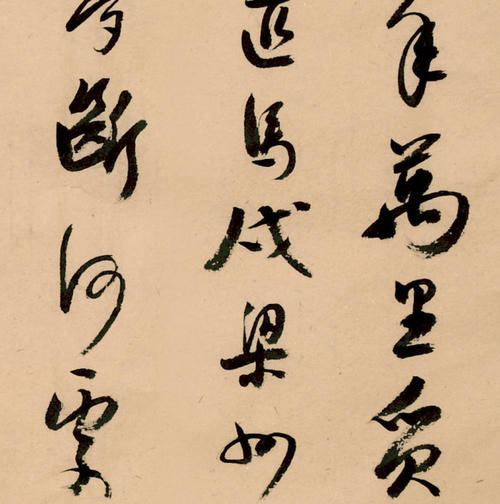 年萬里覓
匹馬戍梁州
夢斷何處